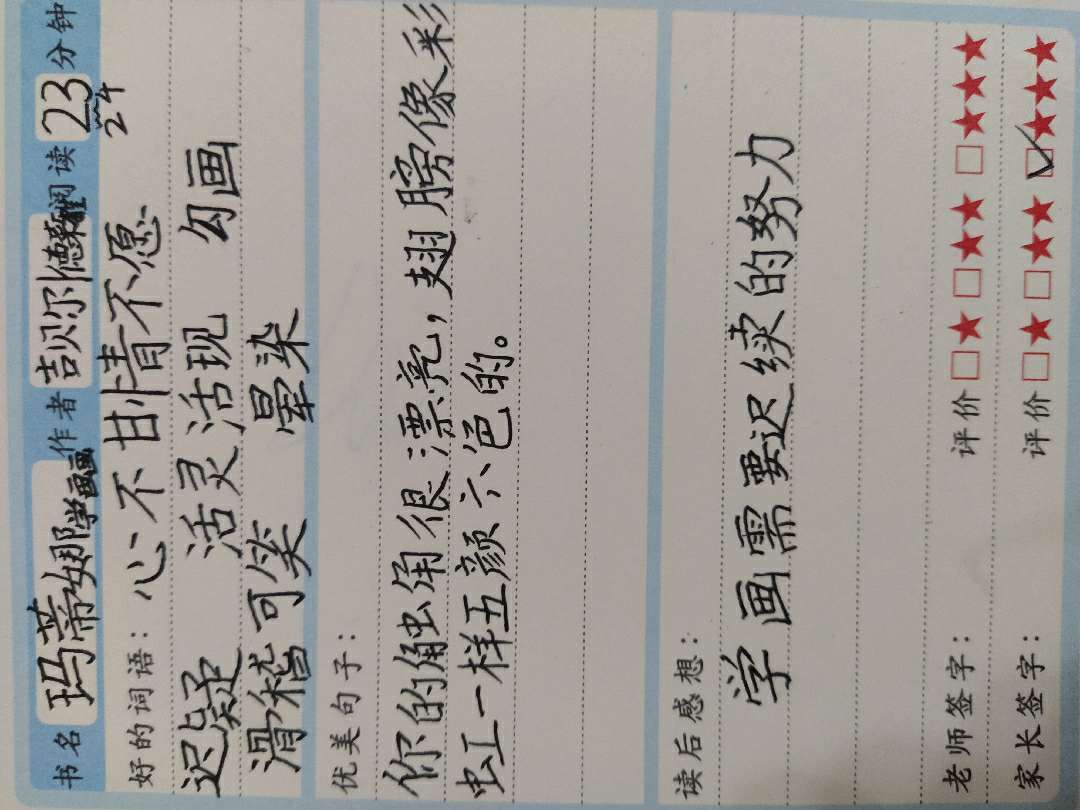 书名 玛蒂娜学画画 作者 吉贝尔德莱雅 阅读 23 分钟
24
好的词语：心不甘情不愿
迟疑 活灵活现 勾画
滑稽可笑 晕染
优美句子：
你的触角很漂亮，翅膀像彩
虹一样五颜六色的。
读后感想：
学画需要迟续的努力
老师签字： 评价 □★ □★★ □★★★
家长签字： 评价 □★ □★★ ☑★★★